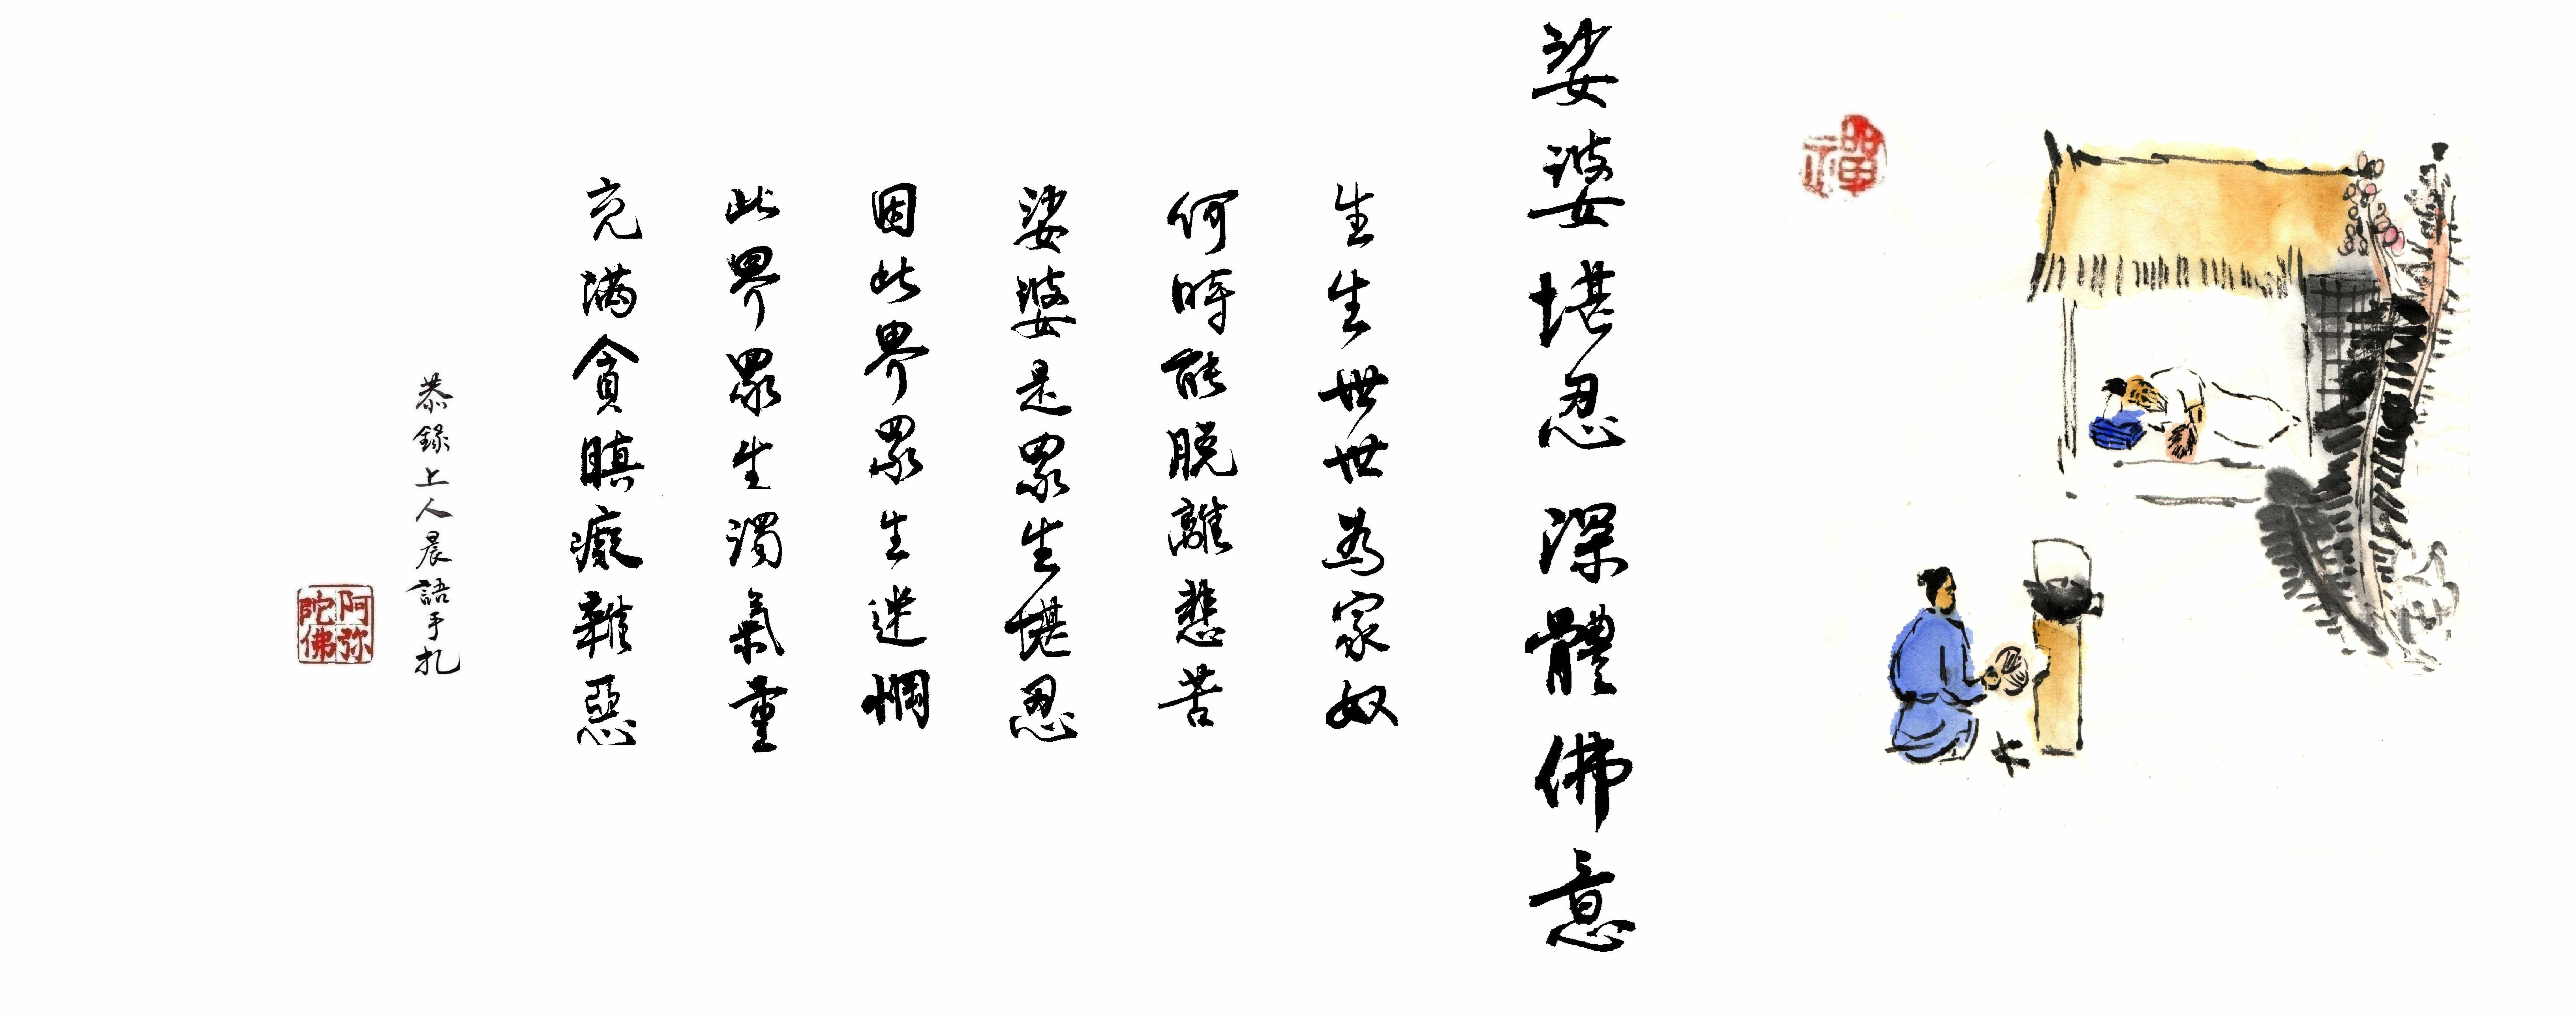 禪
娑婆堪忍 深體佛意
生生世世為家奴
何時能脫離愁苦
娑婆是眾生堪忍
因此界眾生迷惘
此界眾生濁氣重
充滿貪瞋癡雜惡
恭錄上人晨語手扎
阿弥陀佛